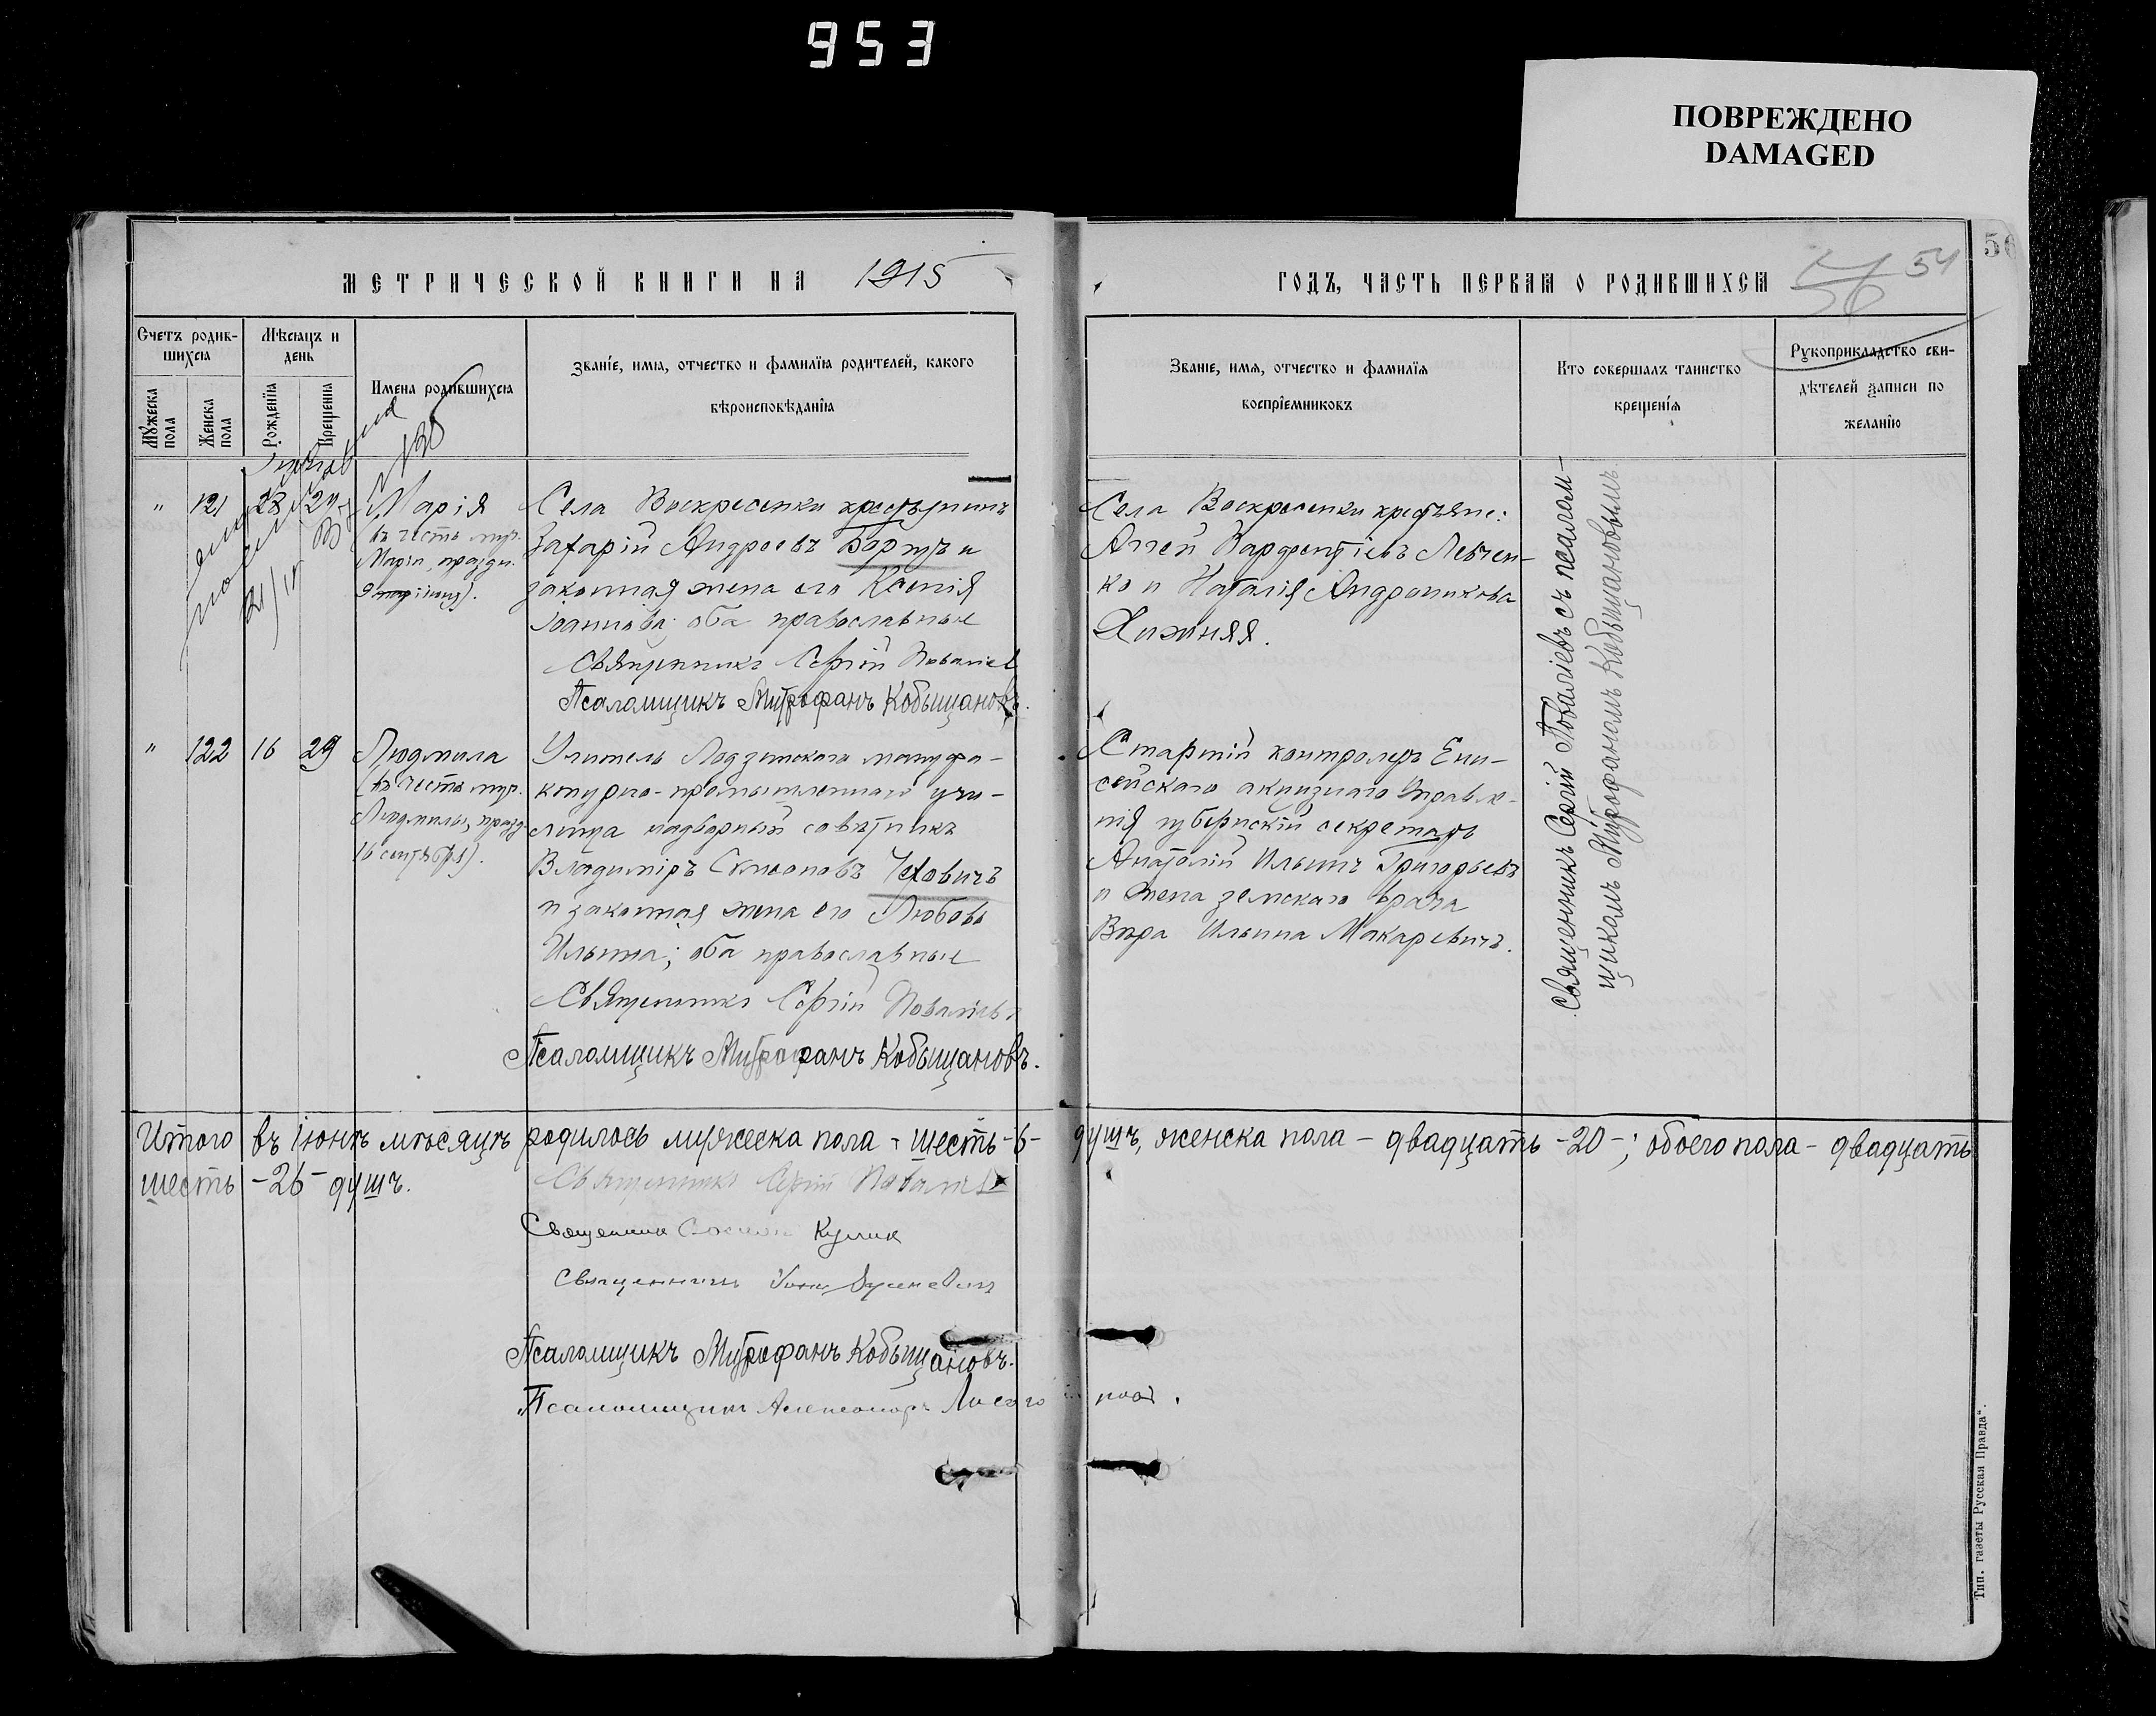 953
ПОВРЕЖДЕНО
DAMAGED
МЕТРИЧЕСКОЙ КНИГИ НА 1915
ГОДЪ, ЧАСТЬ ПЕРВАЯ О РОДИВШИХСЯ
54
56
Счетъ родив-
шихся
Мѣсяцъ и
день
Мужеска
пола
Женска
пола
Рожденїя
Крещенїя
Имена родившихся
Званїе, имя, отчество и фамилїя родителей, какого
вѣроисповѣданїя
Званїе, имя, отчество и фамилїя
воспрїемниковъ
Кто совершалъ таинство
крещенїя
Рукоприкладство сви-
дѣтелей записи по
желанїю
" 121 28 29
Марія
(въ честь муч.
Маріи, праздн.
Села Воскресенки крестьянинъ
Захарій Андреевъ Боргуч и
законная жена его Ксенія
Іоаннова; оба православные
Священникъ Сергій Поваліев
Псаломщикъ Митрофанъ Кобыщановъ.
Села Воскресенки крестьяне:
Левчен-
ко и Наталія Андроникова
Хижняя.
Священникъ Сергій Поваліевъ съ псалом-
щикомъ Митрофаномъ Кобыщановымъ.
" 122 16 29
Людмила
(въ честь муч.
Людмилы, празд.
16 сентября).
Учитель Лодзинскаго мануфа-
ктурно-промышленнаго учи-
лища надворный совѣтникъ
Владиміръ Симеоновъ Чеховичъ
и законная жена его Любовь
Ильина; оба православные
Священникъ Сергій Поваліевъ
Псаломщикъ Митрофанъ Кобыщановъ.
Старшій контролеръ Ени-
сейскаго акцизнаго Управле-
нія губернскій секретарь
Анатолій Ильичъ Григорьевъ
и жена земскаго врача
Вѣра Ильина Макаревичъ.
Итого въ Іюнѣ мѣсяцѣ родилось мужеска пола - шесть -6- душъ, женска пола - двадцать -20-; обоего пола - двадцать
шесть -26- душъ.
Священникъ Сергій Поваліевъ
Священник Кулик
Священникъ
Псаломщикъ Митрофанъ Кобыщановъ.
Псаломщикъ Александръ
Тип. газеты Русская Правда".